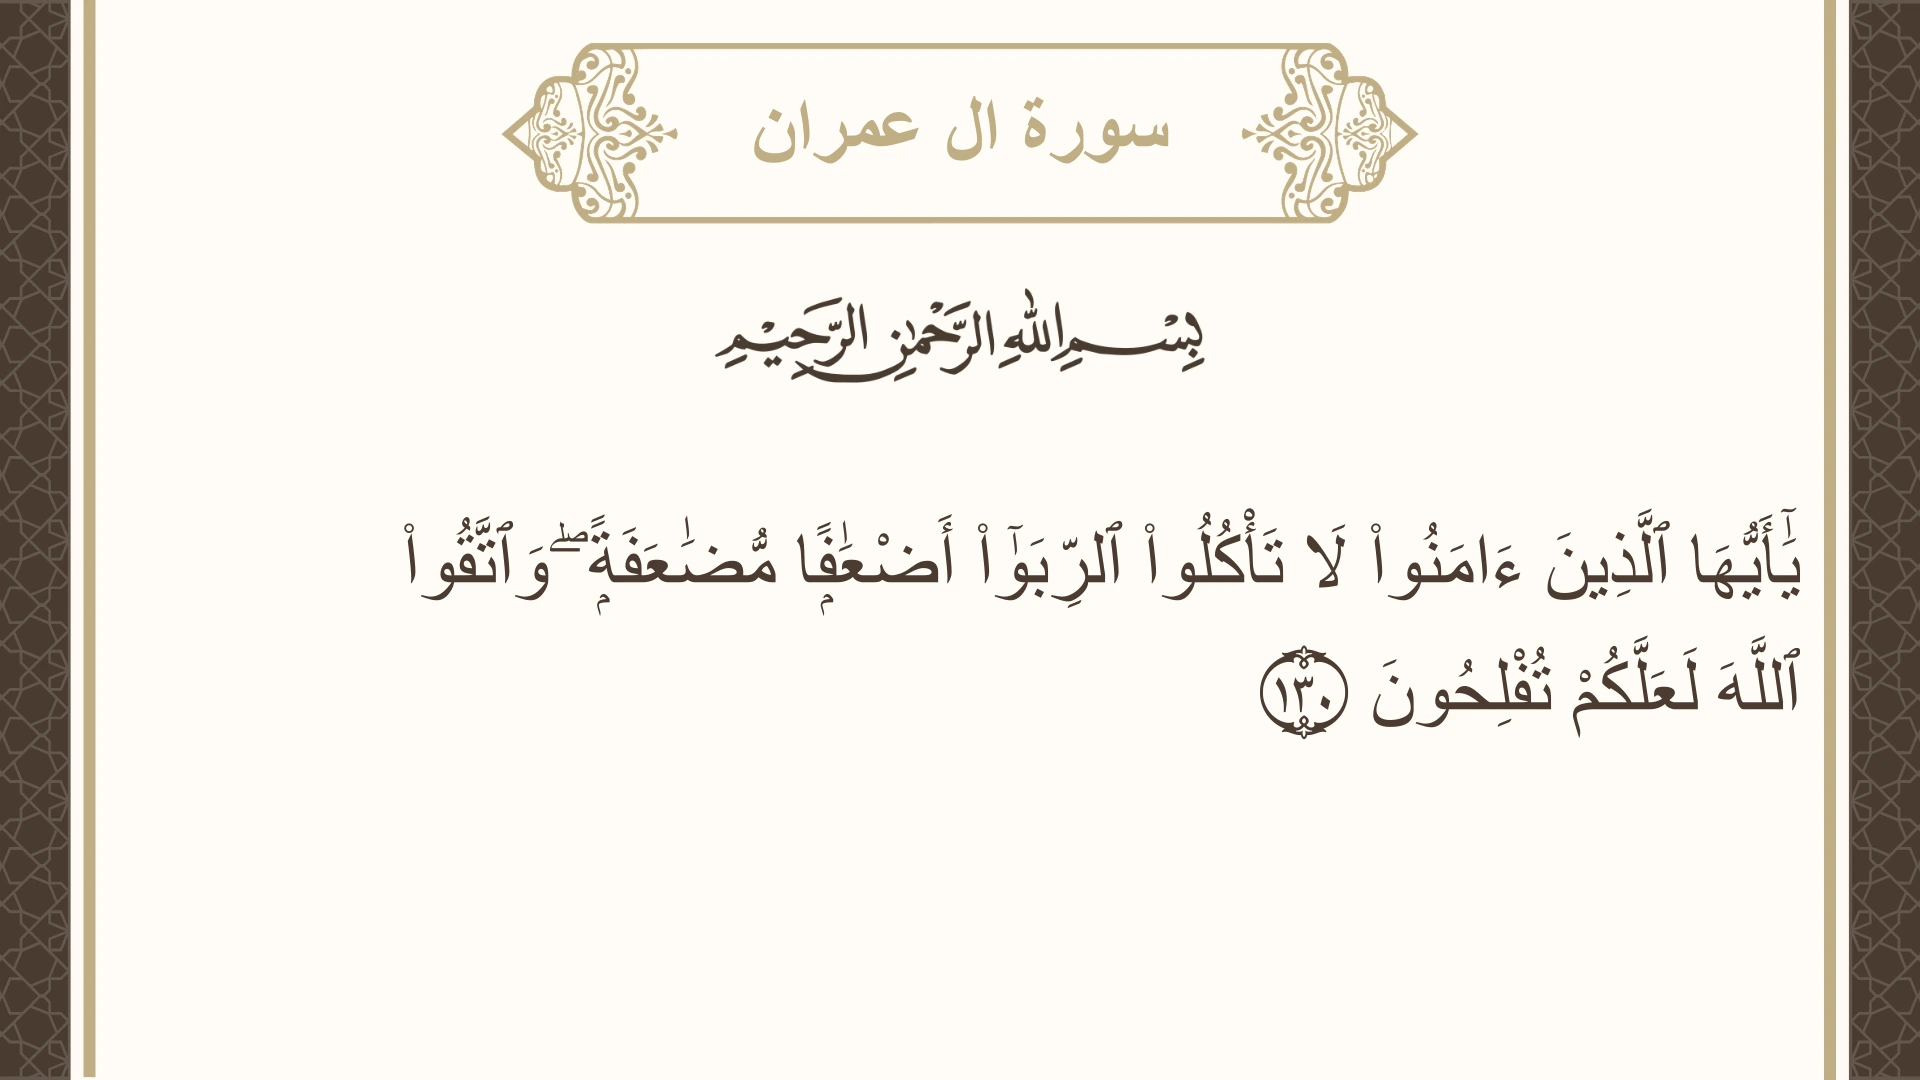 سورة ال عمران
بِسْمِ اللهِ الرَّحْمٰنِ الرَّحِيْمِ
يَٰٓأَيُّهَا ٱلَّذِينَ ءَامَنُوا۟ لَا تَأْكُلُوا۟ ٱلرِّبَوٰٓا۟ أَضْعَٰفًۭا مُّضَٰعَفَةًۭ ۖ وَٱتَّقُوا۟
ٱللَّهَ لَعَلَّكُمْ تُفْلِحُونَ ١٣٠